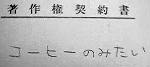 著作権契約書
コーヒーのみたい